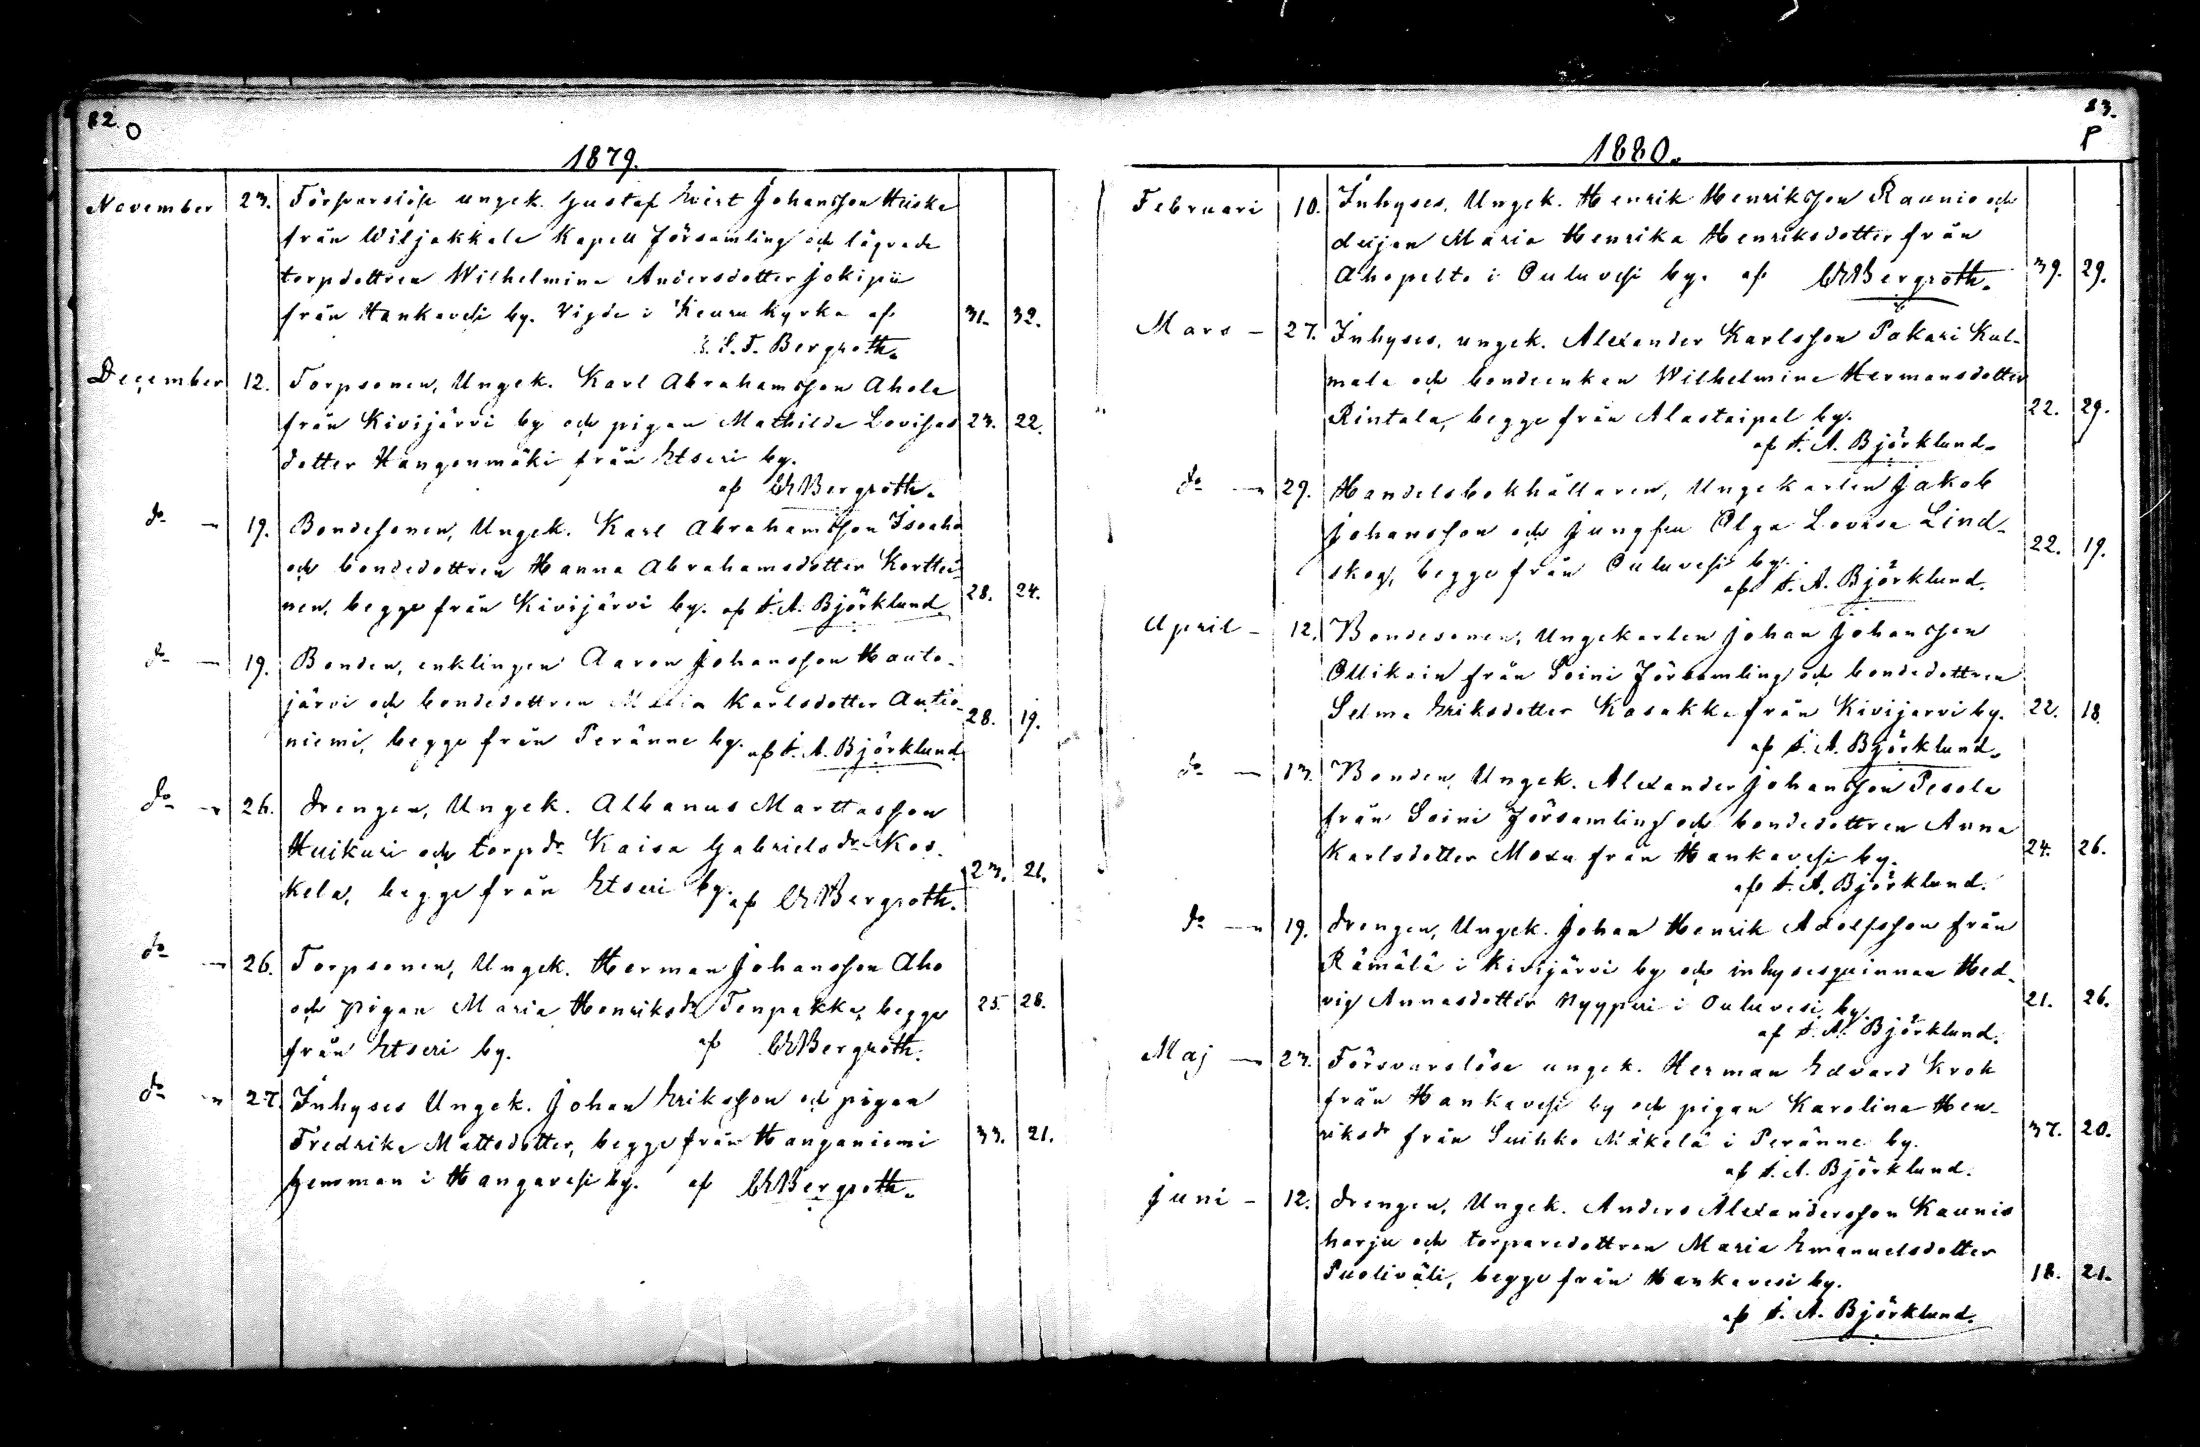 82.
O
1879.
November 23. Försvarslöse ungek. Gustaf Evert Johansson Hiiska
från Wiljakkala Kapell församling och lägrade
torpdottren Wilhelmina Andersdotter Jokipii
från Hankavesi by. Vigde i Keuru Kyrka af 31. 32.
F. T. Bergroth.
December 12. Torpsonen, Ungek. Karl Abrahamsson Ahola
från Kivijärvi by och pigan Mathilda Lovisas 23. 22.
dotter Hangonmäki från Etseri by.
af Bergroth.
do — 19. Bondesonen, Ungek. Karl Abrahamsson Isoaho
och bondedottren Hanna Abrahamsdotter Korttei-
nen, begge från Kivijärvi by. af F. A. Björklund. 28. 24.
do — 19. Bonden, enklingen Aaron Johansson Hauto-
järvi och bondedottren Maria Karlsdotter Autio- 28. 19.
niemi, begge från Peränne by. af F. A. Björklund.
do — 26. Drengen, Ungek. Albanus Marttasson
Huikuri och torpdr Kaisa Gabrielsdr Kos-
kela, begge från Etseri by. af Bergroth. 23. 21.
do — 26. Torpsonen, Ungek. Herman Johansson Aho
och pigan Maria Henriksdr Tenpakka, begge 25. 28.
från Etseri by. af Bergroth.
do — 27. Inhyses Ungek. Johan Eriksson och pigan
Fredrika Mattsdotter, begge från Hanganiemi 33. 21.
hemman i Hangavesi by. af Bergroth.
83.
P
1880.
Februari 10. Inhyses, Ungek. Henrik Henriksson Raunio och
dejan Maria Henrika Henriksdotter från
Ahopelto i Ouluvesi by. af Bergroth. 39. 29.
Mars — 27. Inhyses, ungek. Alexander Karlsson Pakari Kul-
mala och bondeenkan Wilhelmina Hermansdotter
Rintala, begge från Alastaipal by. 22. 29.
af F. A. Björklund.
do — 29. Handelsbokhållaren, Ungekarlen Jakob
Johansson och Jungfru Olga Lovisa Lind-
skog, begge från Ouluvesi by. 22. 19.
af F. A. Björklund.
April — 12. Bondesonen, Ungekarlen Johan Johansson
Ollikain från Soini församling och bondedottren
Selma Eriksdotter Kasakka från Kivijärvi by. 22. 18.
af F. A. Björklund.
do — 13. Bonden, Ungek. Alexander Johansson Pesola
från Soini församling och bondedottren Anna
Karlsdotter Moxu från Hankavesi by. 24. 26.
af F. A. Björklund.
do — 19. Drengen, Ungek. Johan Henrik Adolfsson från
Rämälä i Kivijärvi by och inhysesqvinnan Hed-
vig Annasdotter Nyyperi i Ouluvesi by. 21. 26.
af F. A. Björklund.
Maj — 23. Försvarslöse ungek. Herman Edvard Krok
från Hankavesi by och pigan Karolina Hen-
riksdr från Suihko Mäkelä i Peränne by. 37. 20.
af F. A. Björklund.
Juni — 12. Drengen, Ungek. Anders Alexandersson Kaunis
harju och torparedottren Maria Emanuelsdotter
Puoliväli, begge från Hankavesi by. 18. 21.
af F. A. Björklund.